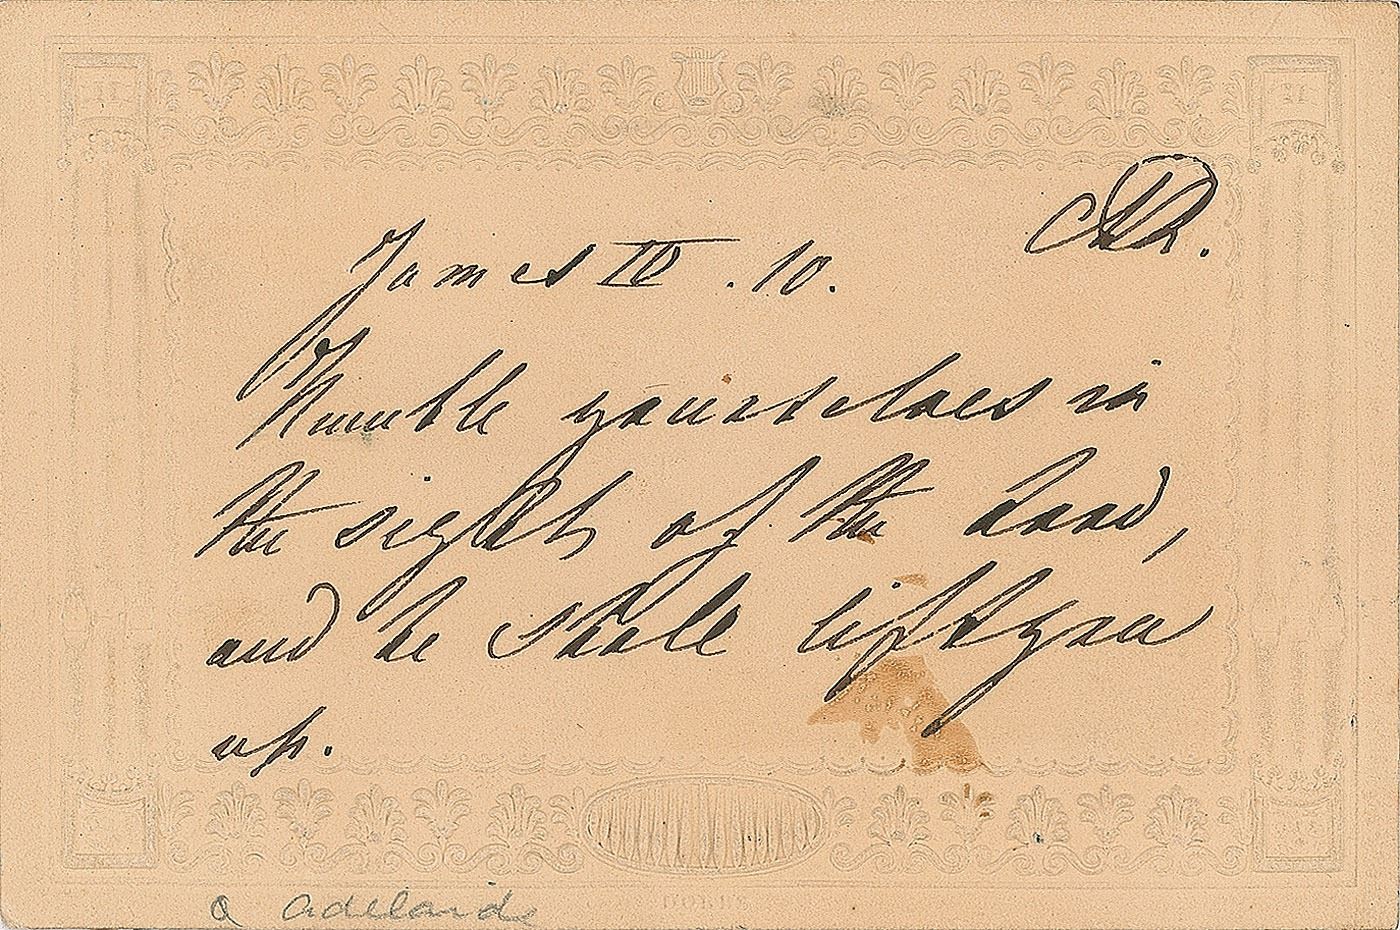 AR.
James IV. 10.
Humble yourselves in
the sight of the Lord,
and he shall lift you
up.
Q Adelaide